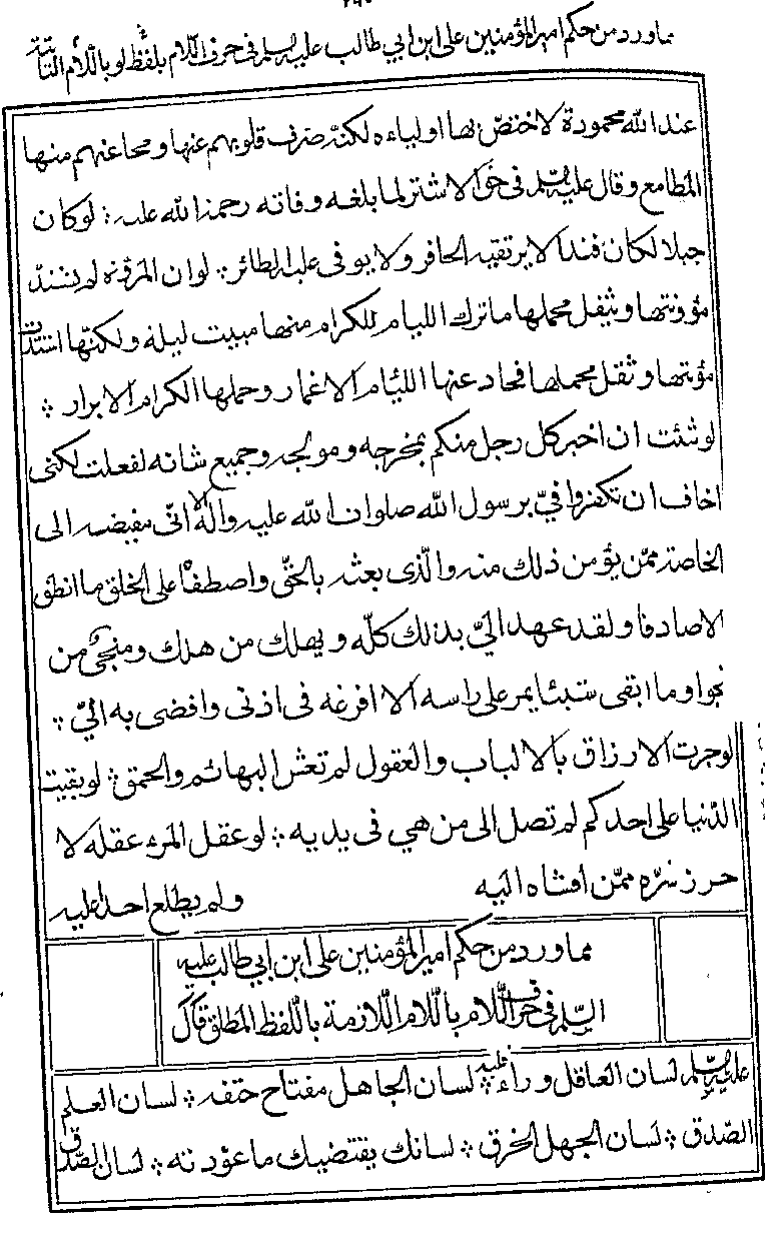 ٢٩٠
مما ورد من حكم امير المؤمنين على ابن ابي طالب عليه السلم فى حرف اللام بلفظ لو باللام الثابتة
عند الله محمودة لاختصّ بها اولياءه لكنّه صرف قلوبهم عنها ومحا عنهم منها
المطامع وقال عليه السلم فى حق الاشتر لما بلغه وفاته رحمة الله عليه ؛ لو كان
جبلا لكان فندا لا يرتقيه الحافر ولا يوفى عليه الطائر ؛ لو ان المروّة لم تشتدّ
مؤونتها ويثقل محملها ما ترك الليام للكرام منها مبيت ليلة ولكنّها اشتدّت
مؤنتها وثقل محملها فحاد عنها اللئام الاغمار وحملها الكرام الابرار ؛
لو شئت ان اخبر كل رجل منكم بمخرجه ومولجه وجميع شانه لفعلت لكنى
اخاف ان تكفروا فيّ برسول الله صلوات الله عليه واله الا انّى مفيضه الى
الخاصة ممّن يؤمن ذلك منه والّذى بعثه بالحقّ واصطفاه على الخلق ما انطق
الا صادقا ولقد عهد اليّ بذلك كلّه وبمهلك من هلك ومنجى من
نجوا وما ابقى شيئا يمر على راسه الا افرغه فى اذنى وافضى به اليّ ؛
لو جرت الارزاق بالالباب والعقول لم تعش البهائم والحمق ؛ لو بقيت
الدّنيا على احدكم لم تصل الى من هي فى يديه ؛ لو عقل المرء عقله لا
حرز سرّه ممّن افشاه اليه ولم يطلع احدا عليه
مما ورد من حكم امير المؤمنين على ابن ابي طالب عليه
السّلم فى حرف اللّام باللّام اللّازمة باللّفظ المطلق قال
عليه السلم لسان العاقل وراء قلبه ؛ لسان الجاهل مفتاح حتفه ؛ لسان العلم
الصّدق ؛ لسان الجهل الخرق ؛ لسانك يقتضيك ما عوّدته ؛ لسان الصّدق